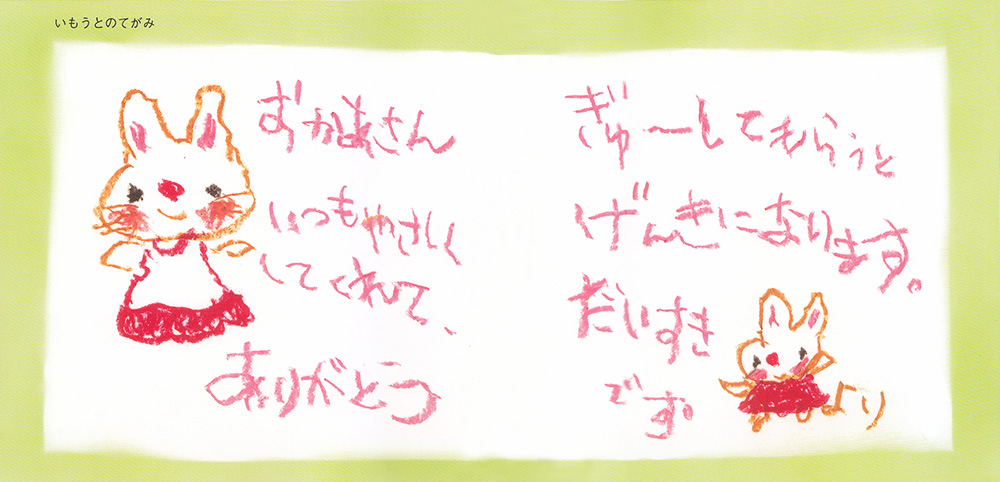 いもうとのてがみ
おかあさん
いつもやさしく
してくれて、
ありがとう
ぎゅーしてもらうと
げんきになります。
だいすき
です。
より